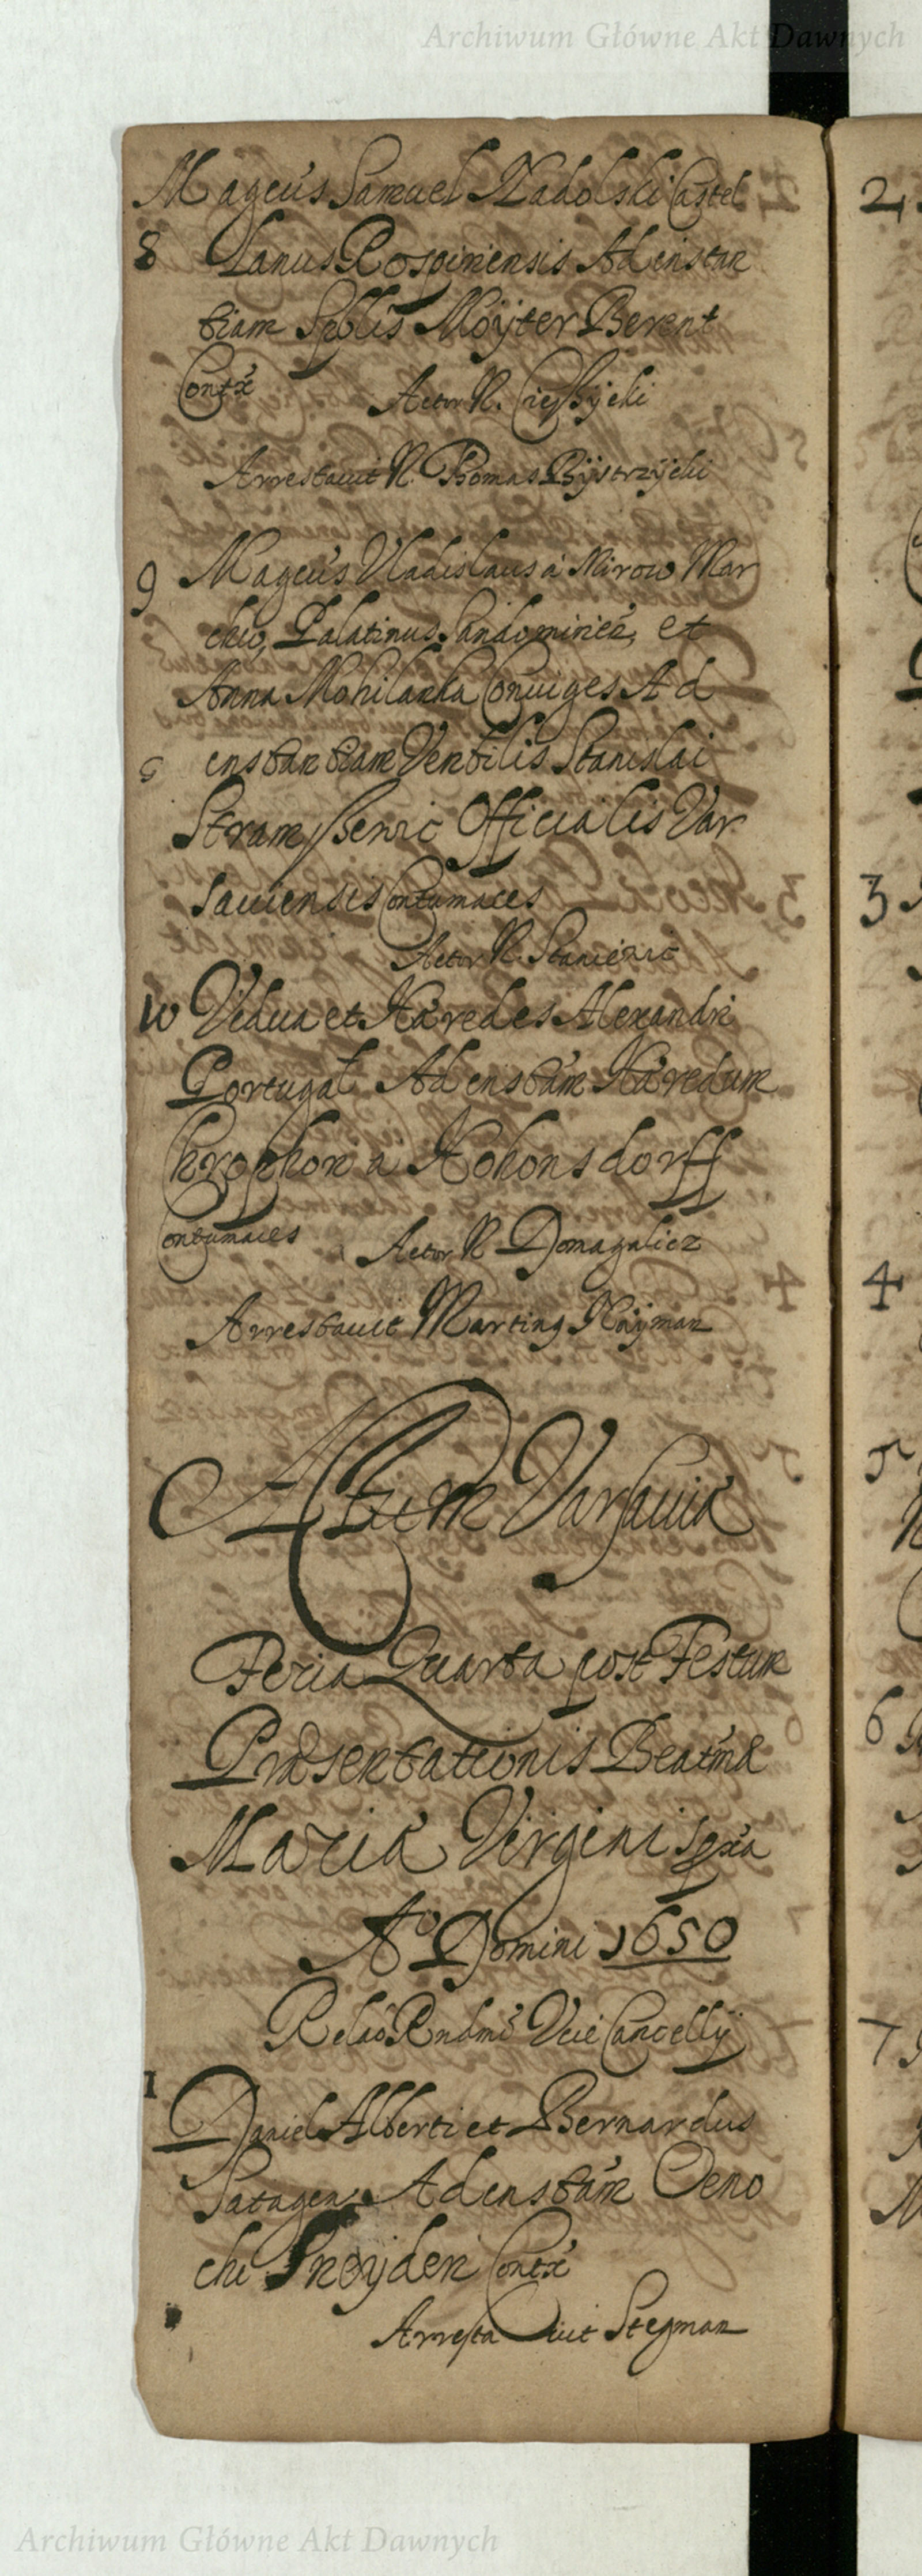 Archiwum Główne Akt Dawnych
Magcus Samuel Nadolski Castel
8 lanus Rospiriensis Ad instan
tiam Spblis Moyter Berent
Contx Actor N. Ciesszycki
Arrestauit N. Thomas Bystrzycki
9 Magcus Vladislaus à Mirow Mar
chio, Palatinus Sandomirien, et
Anna Mohilanka Coniuges Ad
instantiam Venbilis Stanislai
Officialis Var
sauiensis Contumaces
Actor N.
10 Vidua et Hæredes Alexandri
Portugal Ad instam Hæredum
a Hohonsdorff
Contumaces Actor N Domagalicz
Arrestauit Martinq Hayman
Actum Varsauiæ
Feria Quarta post Festum
Præsentationis Beatmæ
Mariæ Virgini
Ao Domini 1650
Relao Rndmi Vice Cancellÿ
1 Daniel Alberti et Bernardus
Patagen Ad instam Oeno
chi Snoyder Contx
Arrestauit Stegman
2
3
4
5
6
7
Archiwum Główne Akt Dawnych